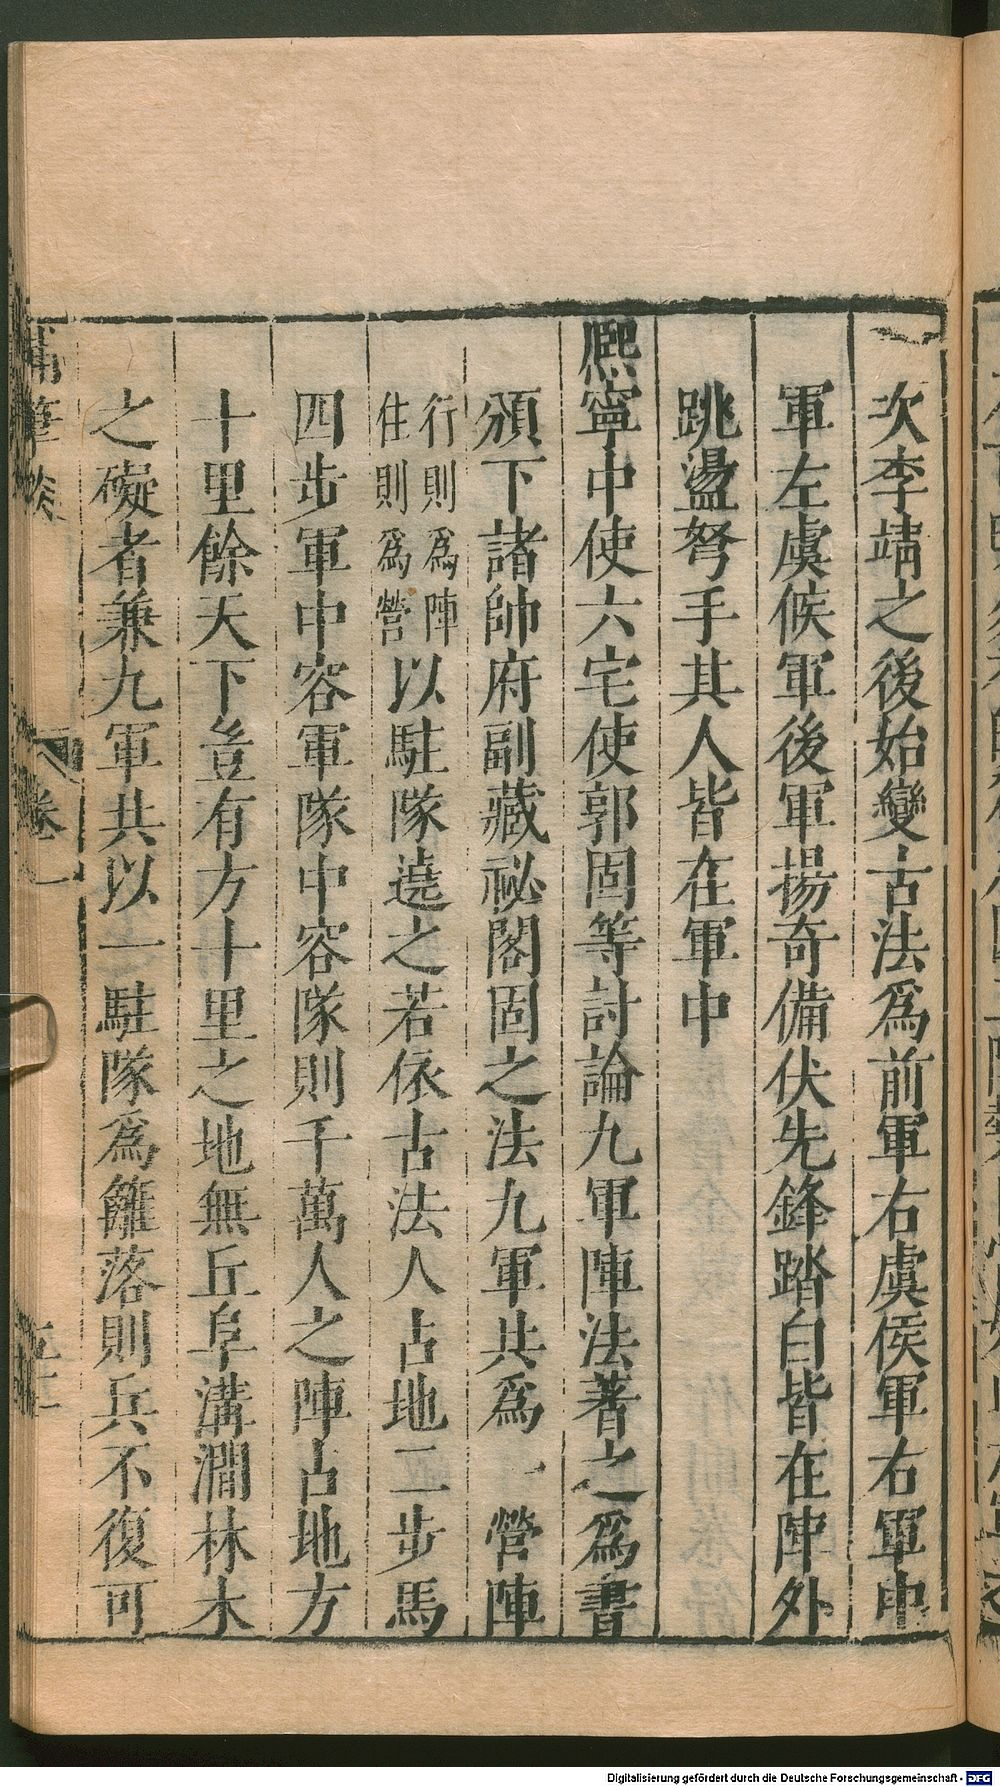 次李靖之後始變古法為前軍右虞侯軍右軍中
軍左虞候軍後軍揚奇備伏先鋒踏白皆在陣外
跳盪弩手其人皆在軍中
熈寧中使六宅使郭固等討論九軍陣法著之為書
頒下諸帥府副藏祕閣固之法九軍共為一營陣
行則為陣
住則為營
以駐隊遶之若依古法人占地二步馬
四步軍中容軍隊中容隊則千萬人之陣占地方
十里餘天下豈有方十里之地無丘阜溝澗林木
之礙者兼九軍共以一駐隊為籬落則兵不復可
卷一
Digitalisierung gefördert durch die Deutsche Forschungsgemeinschaft - DFG